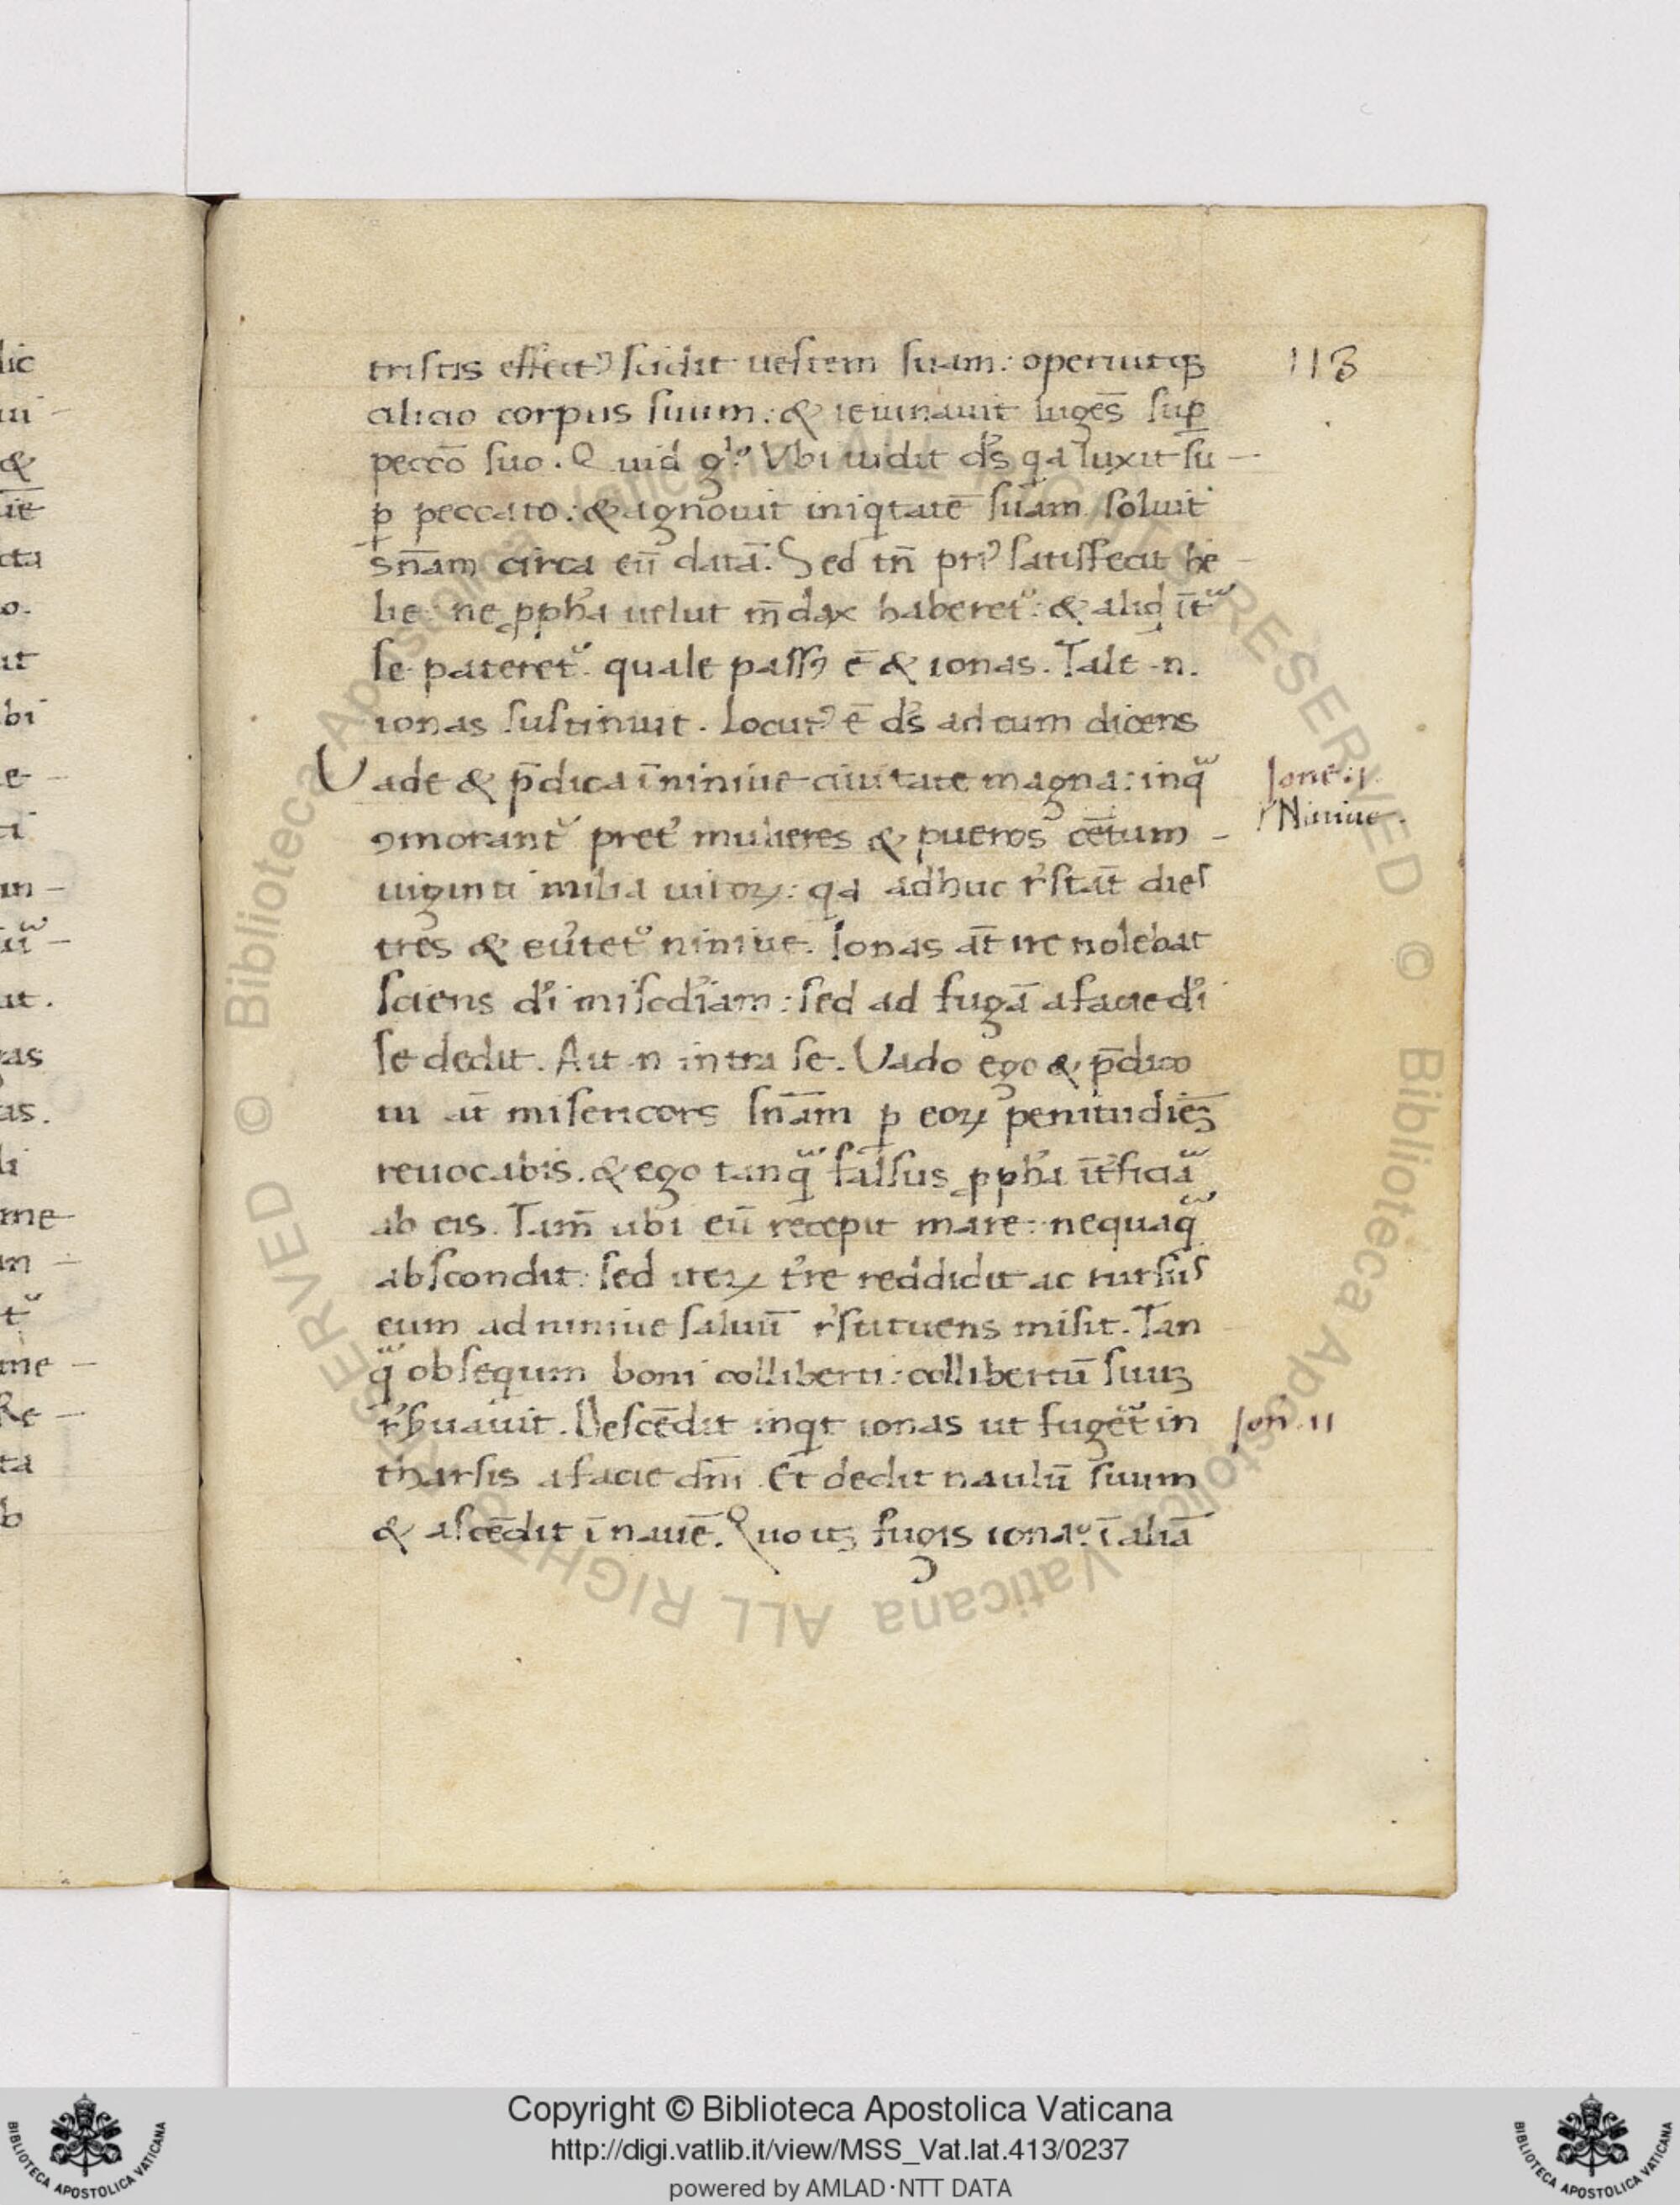 113
tristis effectꝰ scidit uestem suam: operuitqꝫ
cilicio corpus suum: & ieiunauit lugēs suꝑ
peccō suo. Quid gͦ? Vbi uidit dꝰs qa luxit su
ꝑ peccato: & agnouit iniqtatē suam soluit
sn̄am circa eū datā. Sed tn̄ priꝰ satisfecit he
lie ne ꝓpħa uelut m̄dax haberet᷑: & aliq īt᷑
se pateret᷑ quale passꝰ ē & ionas. Tale .n.
ionas sustinuit. Locutꝰ ē ds̄ ad eum dicens
Vade & p̄dica ī niniue ciuitate magna: in q̄
ꝯmorant᷑ pret̓ mulieres & pueros cētum
uiginti milia uiroꝝ: qa adhuc r̓stāt dies
tres & eu̓tet᷑ niniue. Ionas āt ire nolebat
sciens dī misc̄diam: sed ad fugā a facie dī
se dedit. Ait .n. intra se. Vado ego & p̄dico
tu āt misericors sn̄am ꝑ eoꝝ penitudīeꝫ
reuocabis. & ego tanq̄ falsus ꝓpħa īt̓ficiā
ab eis. Tam̄ ubi eū recepit mare: nequaq̄
abscondit: sed iteꝝ t̓re reddidit ac rursus
eum ad niniue saluū r̓stituens misit. Tan
q̄ obsequium boni colliberti: collibertū suuꝫ
r̓s̓uauit. Descēdit inqt ionas ut fuget᷑ in
tharsis a facie dn̄i Et dedit naulū suum
& ascēdit ī nauē. Quo usꝫ fugis iona? ī aliā
Ione .i.
Niniue.
Ion. ii
© Biblioteca Apostolica Vaticana ALL RIGHTS RESERVED
Copyright © Biblioteca Apostolica Vaticana
http://digi.vatlib.it/view/MSS_Vat.lat.413/0237
powered by AMLAD·NTT DATA
BIBLIOTECA APOSTOLICA VATICANA
BIBLIOTECA APOSTOLICA VATICANA